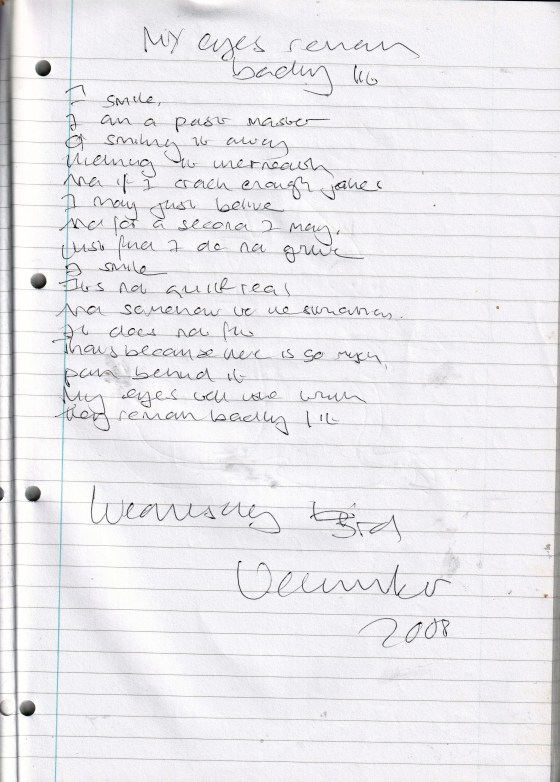 My eyes remain
badly lit
I smile,
I am a past master
of smiling it away
And if I crack enough jokes
I may just belive
And for a second I may,
just find I do not grieve
I smile
Its not quite real
And somehow in the
It does not fit
Thats because there is so much,
pain behind it
My eyes
they remain badly lit
Wednesday 3rd
December
2008